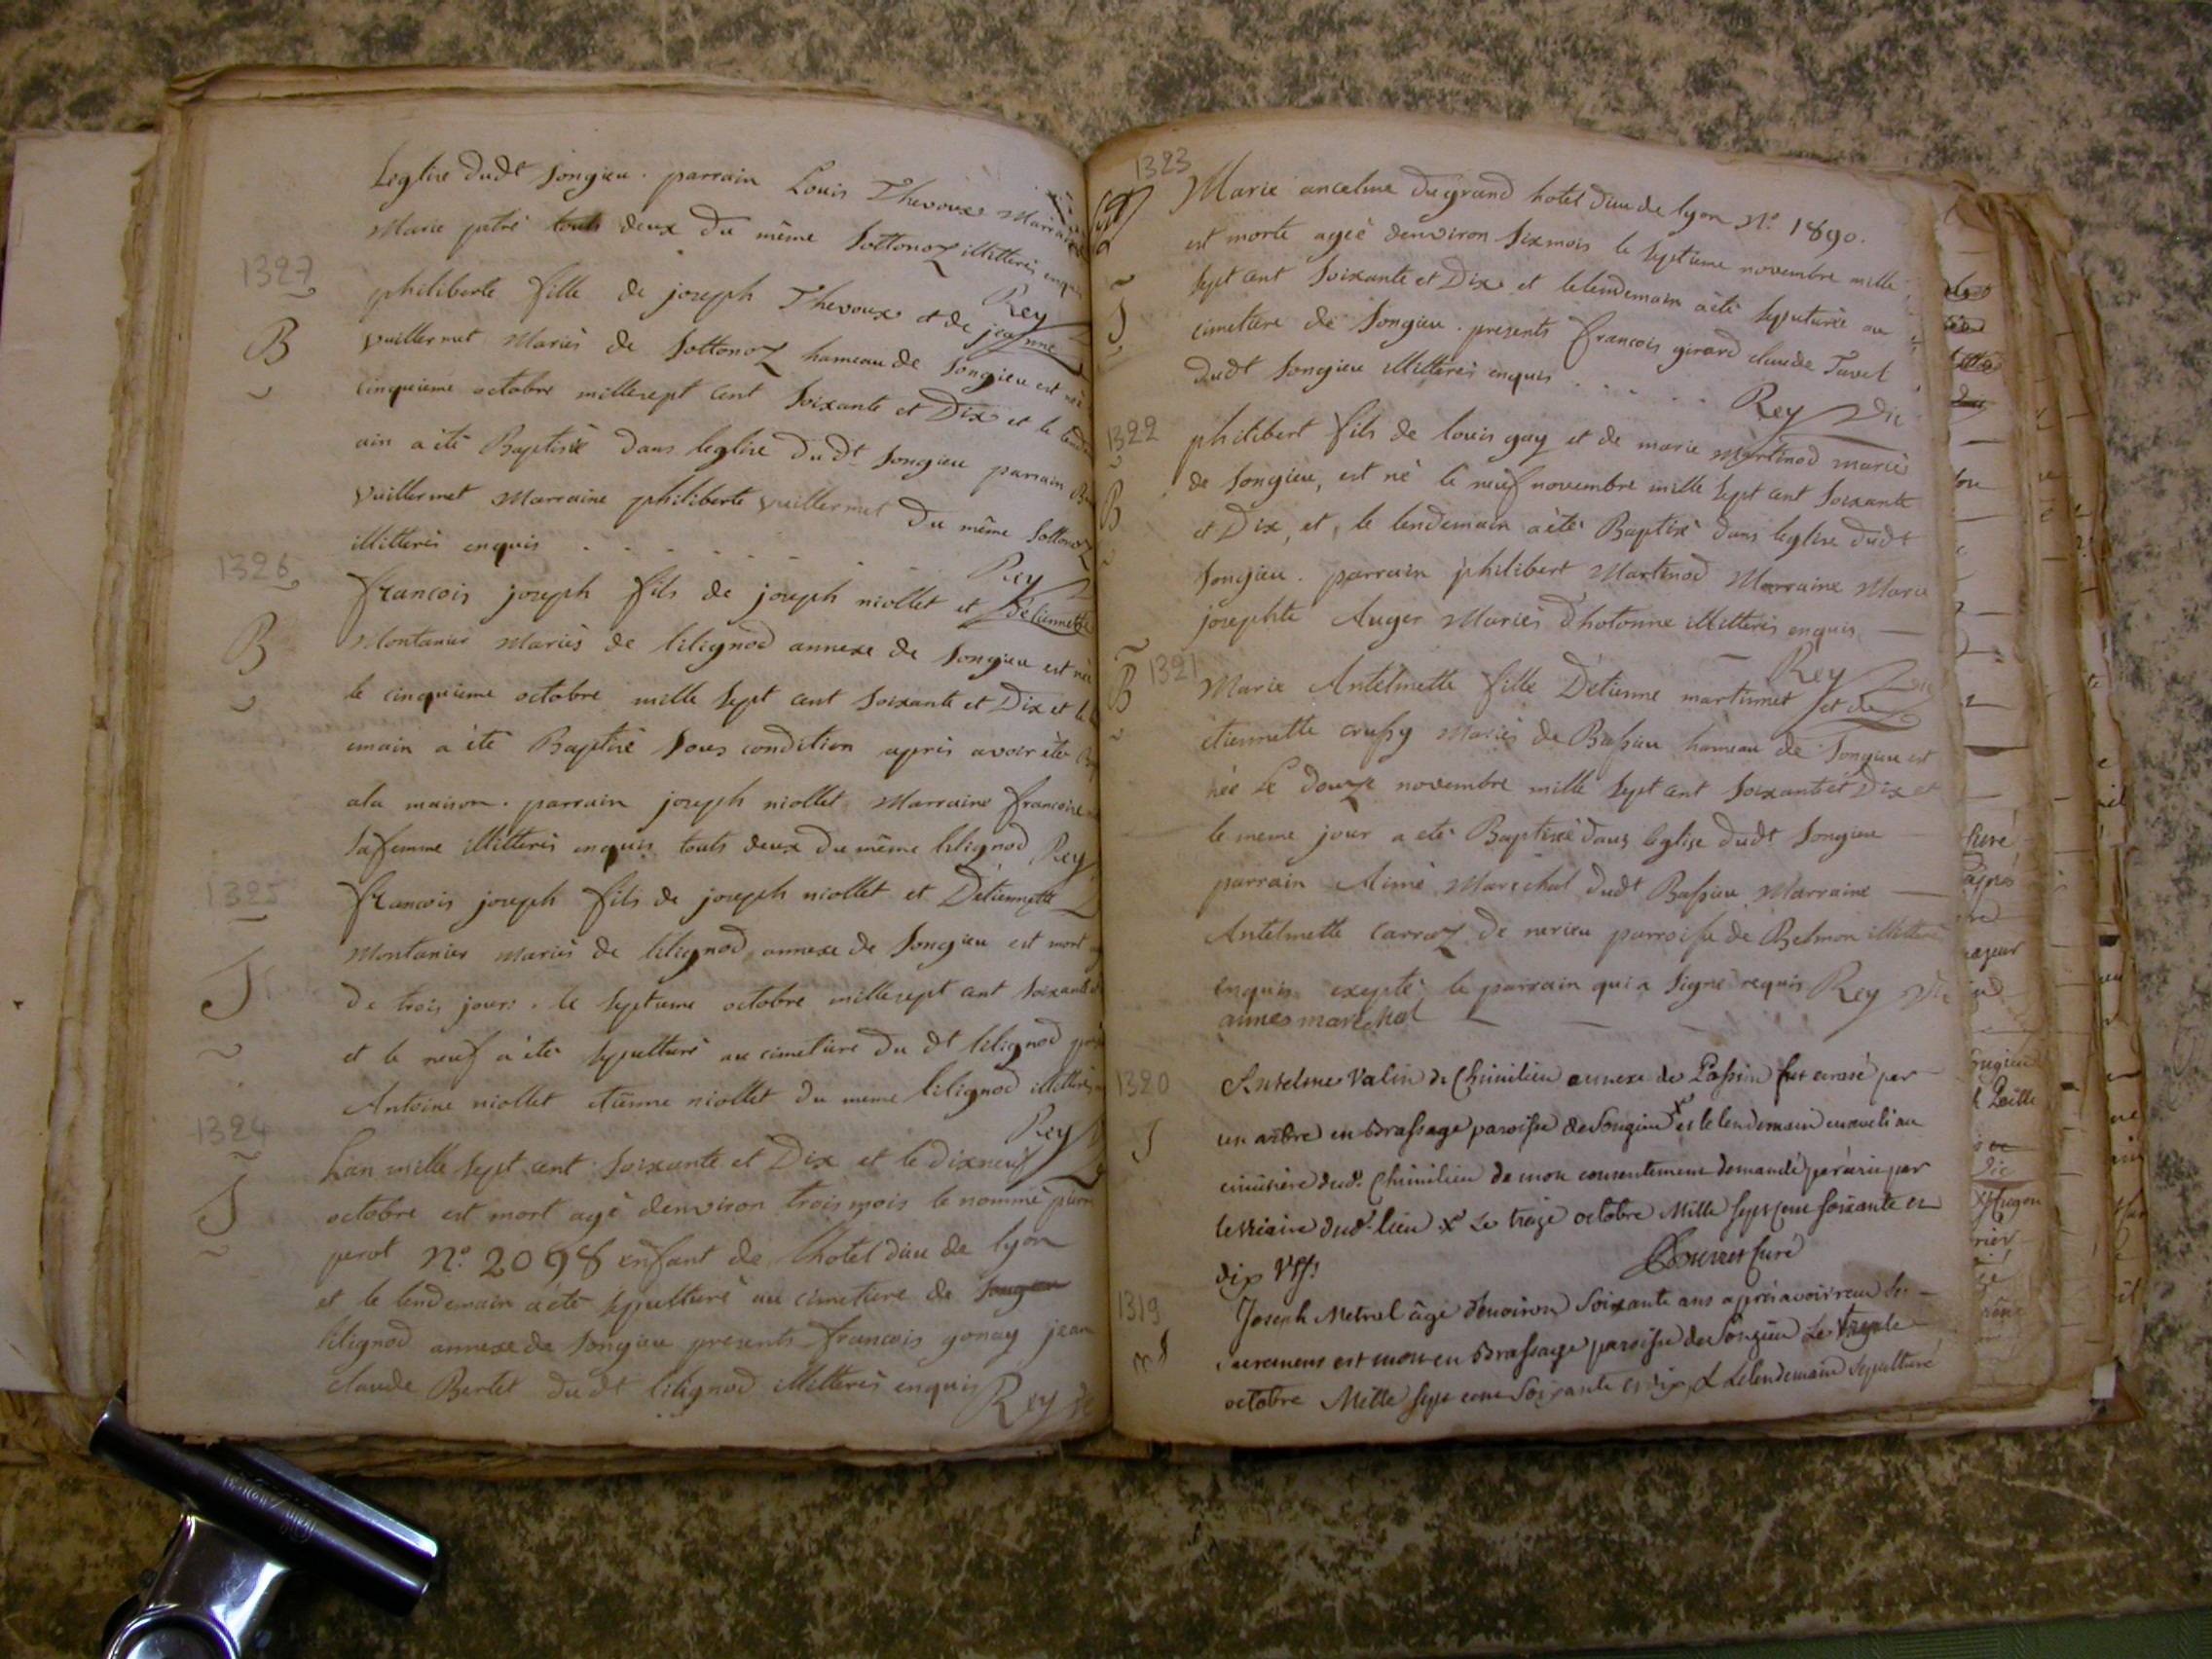 Leglise dudt Songieu. parrain Louis Thevoux Marraine
Marie petré touts deux du même Sottonoz illitterés enquis
Rey
1327
B
philiberte fille de joseph Thevoux et de jeanne
vuillermet Mariés de Sottonoz hameau de Songieu est née
cinquieme octobre millesept cent Soixante et Dix et le lend
ain a été Baptisée Dans leglise Dudt Songieu parrain
vuillermet Marraine philiberte vuillermet Du même Sottonoz
illitterés enquis . . . . . . .
Rey
1326
B
francois joseph fils de joseph niollet et D'étiennette
Montanier Mariés de lilignod annexe de Songieu est né
le cinquieme octobre mille Sept cent Soixante et Dix et le
emain a été Baptisé Sous condition après avoir été
ala maison. parrain joseph niollet Marraine francoise
Safemme illitterés enquis touts deux Du même lilignod Rey
1325
S
francois joseph fils de joseph niollet et D'étiennette
Montanier Mariés de lilignod annexe de Songieu est mort
De trois jours. le Septieme octobre millesept cent Soixante
et le neuf a été Sepulturé au cimetiere Du dt lilignod
Antoine niollet etienne niollet du meme lilignod illitterés
Rey
1324
S
Lan mille Sept cent Soixante et Dix et le dixneuf
octobre est mort agé denviron trois mois le nommé pierre
perot No. 2098 enfant de lhotel dieu de lyon
et le lendemain a été Sepulturé au cimetiere de Songieu
lilignod annexe de Songieu presents francois gonay jean
claude Bertet dudt lilignod illitterés enquis
Rey
1323
S
Marie anceline du grand hotel dieu de lyon No. 1890.
est morte ageé denviron Sixmois le Septieme novembre mille
Sept cent Soixante et Dix et lelendemain a été Sepulturée au
cimetiere de Songieu. presents francois girard claude Tavel
dudt Songieu illitterés enquis . . . . .
Rey Vic
1322
B
philibert fils de louis gay et de marie Martinod mariés
de Songieu, est né le neuf novembre mille Sept cent Soixante
et Dix, et, le lendemain a été Baptisé dans leglise dudt
Songieu. parrain philibert Martinod Marraine Marie
josephte Auger Mariés d'hotonne illitterés enquis
Rey Vic
1321
B
Marie Antelmette fille D'étienne martinet et de
etiennette crussy Mariés de Bassieu hameau de Songieu est
née Le Douze novembre mille Sept cent Soixante et Dix et
le meme jour a été Baptisée dans leglise dudt Songieu
parrain Aimé Marechal dudt Bassieu Marraine
Antelmette Carraz de nerieu parroisse de Belmon illitterés
enquis excepté le parrain qui a Signé requis Rey Vic
aimes marechal
1320
S
Antelme Valin de Chimilieu annexe de Passin fut ecrasé par
un arbre en Brassage paroisse de Songieu x et le lendemain enseveli au
cimitière dud. Chimilieu de mon consentement demandé par écrit par
le vicaire dud. lieu x Le treize octobre Mille sept cent soixante et
dix
Curé
1319
S
Joseph Metral âgé d'environ Soixante ans après avoir reçu les
Sacremens est mort en Brassage paroisse de Songieu Le trente
octobre Mille sept cent Soixante et dix & Lelendemain Sepulturé